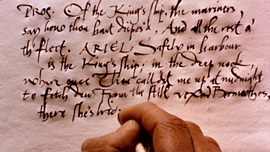 PROS. Of the King's ship, the mariners,
say how thou hast dispos'd, And all the rest o'
th' fleet. ARIEL. Safely in harbour
is the King's ship; in the deep nook,
where once Thou call'dst me up at midnight
to fetch dew From the still vex'd Bermoothes,
there she's hid;